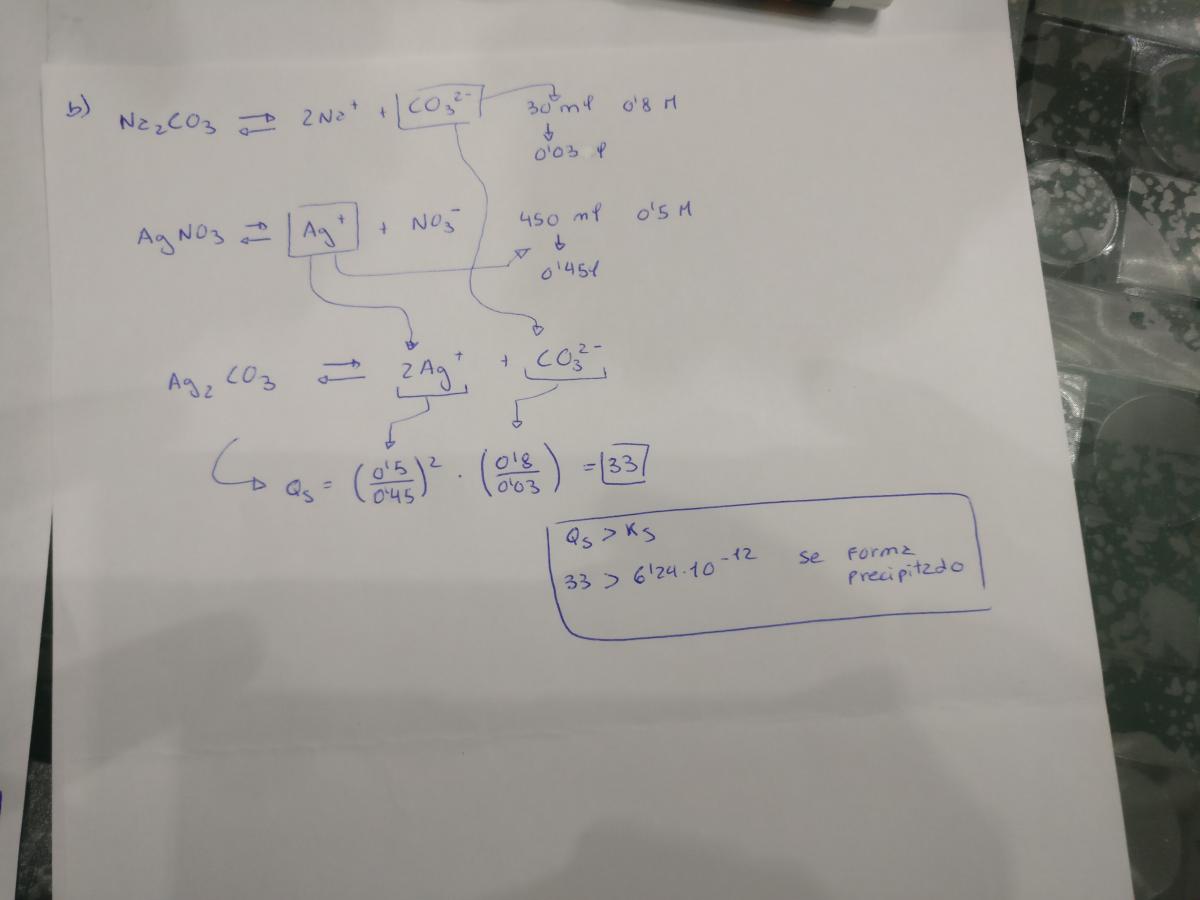 b) Na₂CO₃ ⇌ 2Na⁺ + CO₃²⁻ 30 ml 0'8 M
0'03 l
AgNO₃ ⇌ Ag⁺ + NO₃⁻ 450 ml 0'5 M
0'45 l
Ag₂CO₃ ⇌ 2Ag⁺ + CO₃²⁻
Qs = (0'5/0'45)² · (0'8/0'03) = 33
Qs > Ks
33 > 6'24·10⁻¹² se forma
precipitado